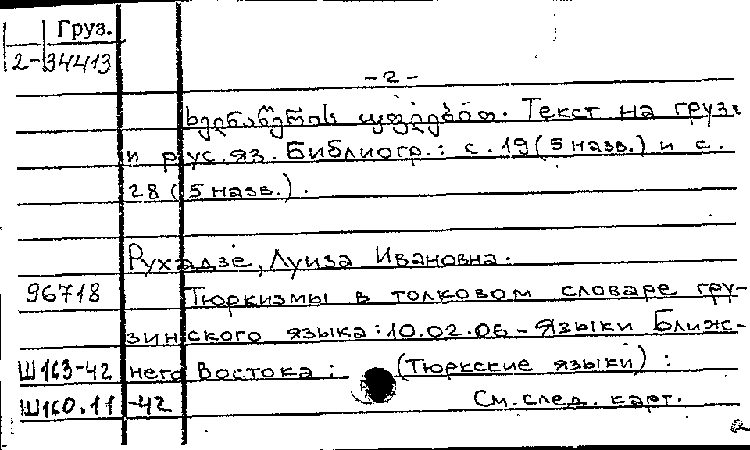 Груз.
2-34413
-2-
Текст на груз.
и рус. яз. Библиогр.: с. 19 (5 назв.) и с.
28 (5 назв.).
Рухадзе, Луиза Ивановна.
96718 Тюркизмы в толковом словаре гру-
зинского языка: 10.02.06 - Языки Ближ-
Ш163-42 него Востока: (Тюркские языки):
Ш160.11-42 См. след. карт.